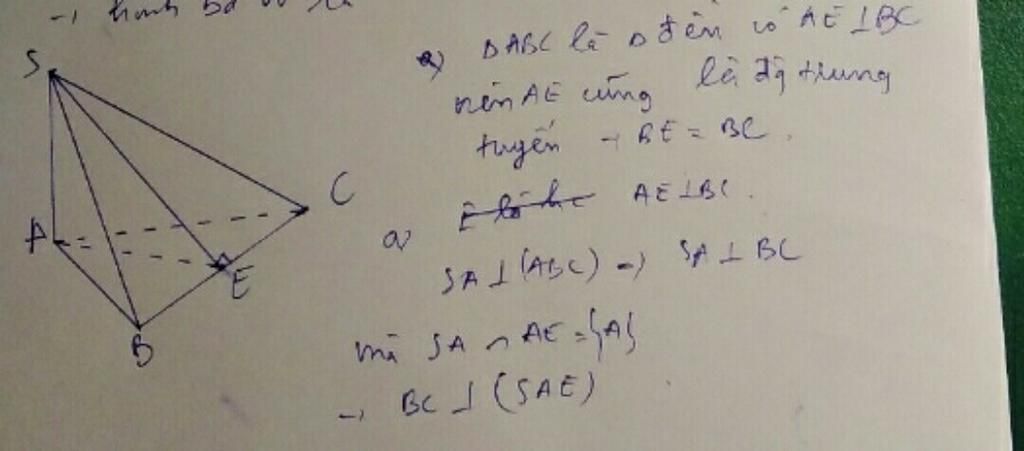 S
A
B
C
E
a) ΔABC là Δ đều có AE⊥BC
nên AE cũng là đg trung
tuyến → BE = BC.
a) AE⊥BC.
SA⊥(ABC) → SA⊥BC
mà SA ∩ AE = {A}
→ BC⊥(SAE)